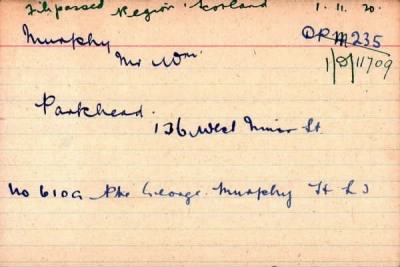 File passed Region Scotland 1.11.20.
Murphy
Mr Wm.
DRM235
1/D/11709
Parkhead.
136 West Muir St.
No 6109 Pte George Murphy H L I